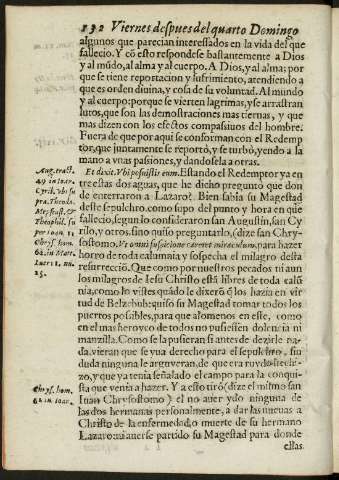 132 Viernes despues del quarto Domingo
algunos que parecian interessados en la vida del que
fallecio. Y cō esto respondese bastantemente a Dios
y al mūdo, al alma y al cuerpo. A Dios, y al alma; por
que se tiene reportacion y sufrimiento, atendiendo a
que es orden diuina, y cosa de su voluntad. Al mundo
y al cuerpo: porque se vierten lagrimas, y se arrastran
lutos, que son las demostraciones mas tiernas, y que
mas dizen con los efectos compassiuos del hombre.
Fuera de que por aqui se conforman con el Redemp
tor, que juntamente se reportò, y se turbò, yendo a la
mano a vnas passiones, y dandosela a otras.
Et dixit. Vbi posuistis eum. Estando el Redemptor ya en
tre estas dos aguas, que he dicho preguntò que don
de enterraron a Lazaro? Bien sabia su Magestad
deste sepulchro. como supo del punto y hora en que
fallecio, segun lo consideraron san Augustin, san Cy
rilo, y otros, sino quiso preguntarlo, (dize san Chry-
sostomo) Vt omni suspicione careret miraculum, para hazer
horro de toda calumnia y sospecha el milagro desta
resurrecciō. Que como por nuestros pecados ni aun
los milagros de Iesu Christo estā libres de toda calū
nia, como lo vistes quādo le dixerō q̃ los hazia en vir
tud de Belzebub: quiso su Magestad tomar todos los
puertos possibles, para que alomenos en este, como
en el mas heroyco de todos no pusiessen dolencia ni
manzilla. Como se la pusieran si antes de dezirle na-
da, vieran que se yua derecho para el sepulchro, sin
duda ninguna le arguyeran, de que era ruydo hechi-
zo, y que ya venia señalado el campo para la conqui-
sta que venia a hazer. Y a esto tirò (dize el mismo san
Iuan Chrysostomo) el no auer ydo ninguna de
las dos hermanas personalmente, a dar las nueuas a
Christo de la enfermedad, o muerte de su hermano
Lazaro: ni auerse partido su Magestad para donde
ellas
Aug. tract.
49 in Ioan.
Cyril. vbi su
pra. Theodo.
Theophil. su
per Ioan. 11
Chrys. hom.
62. in Matt.
Luc. 11. nu.
15.
Chrys. hom.
62 in Ioan.